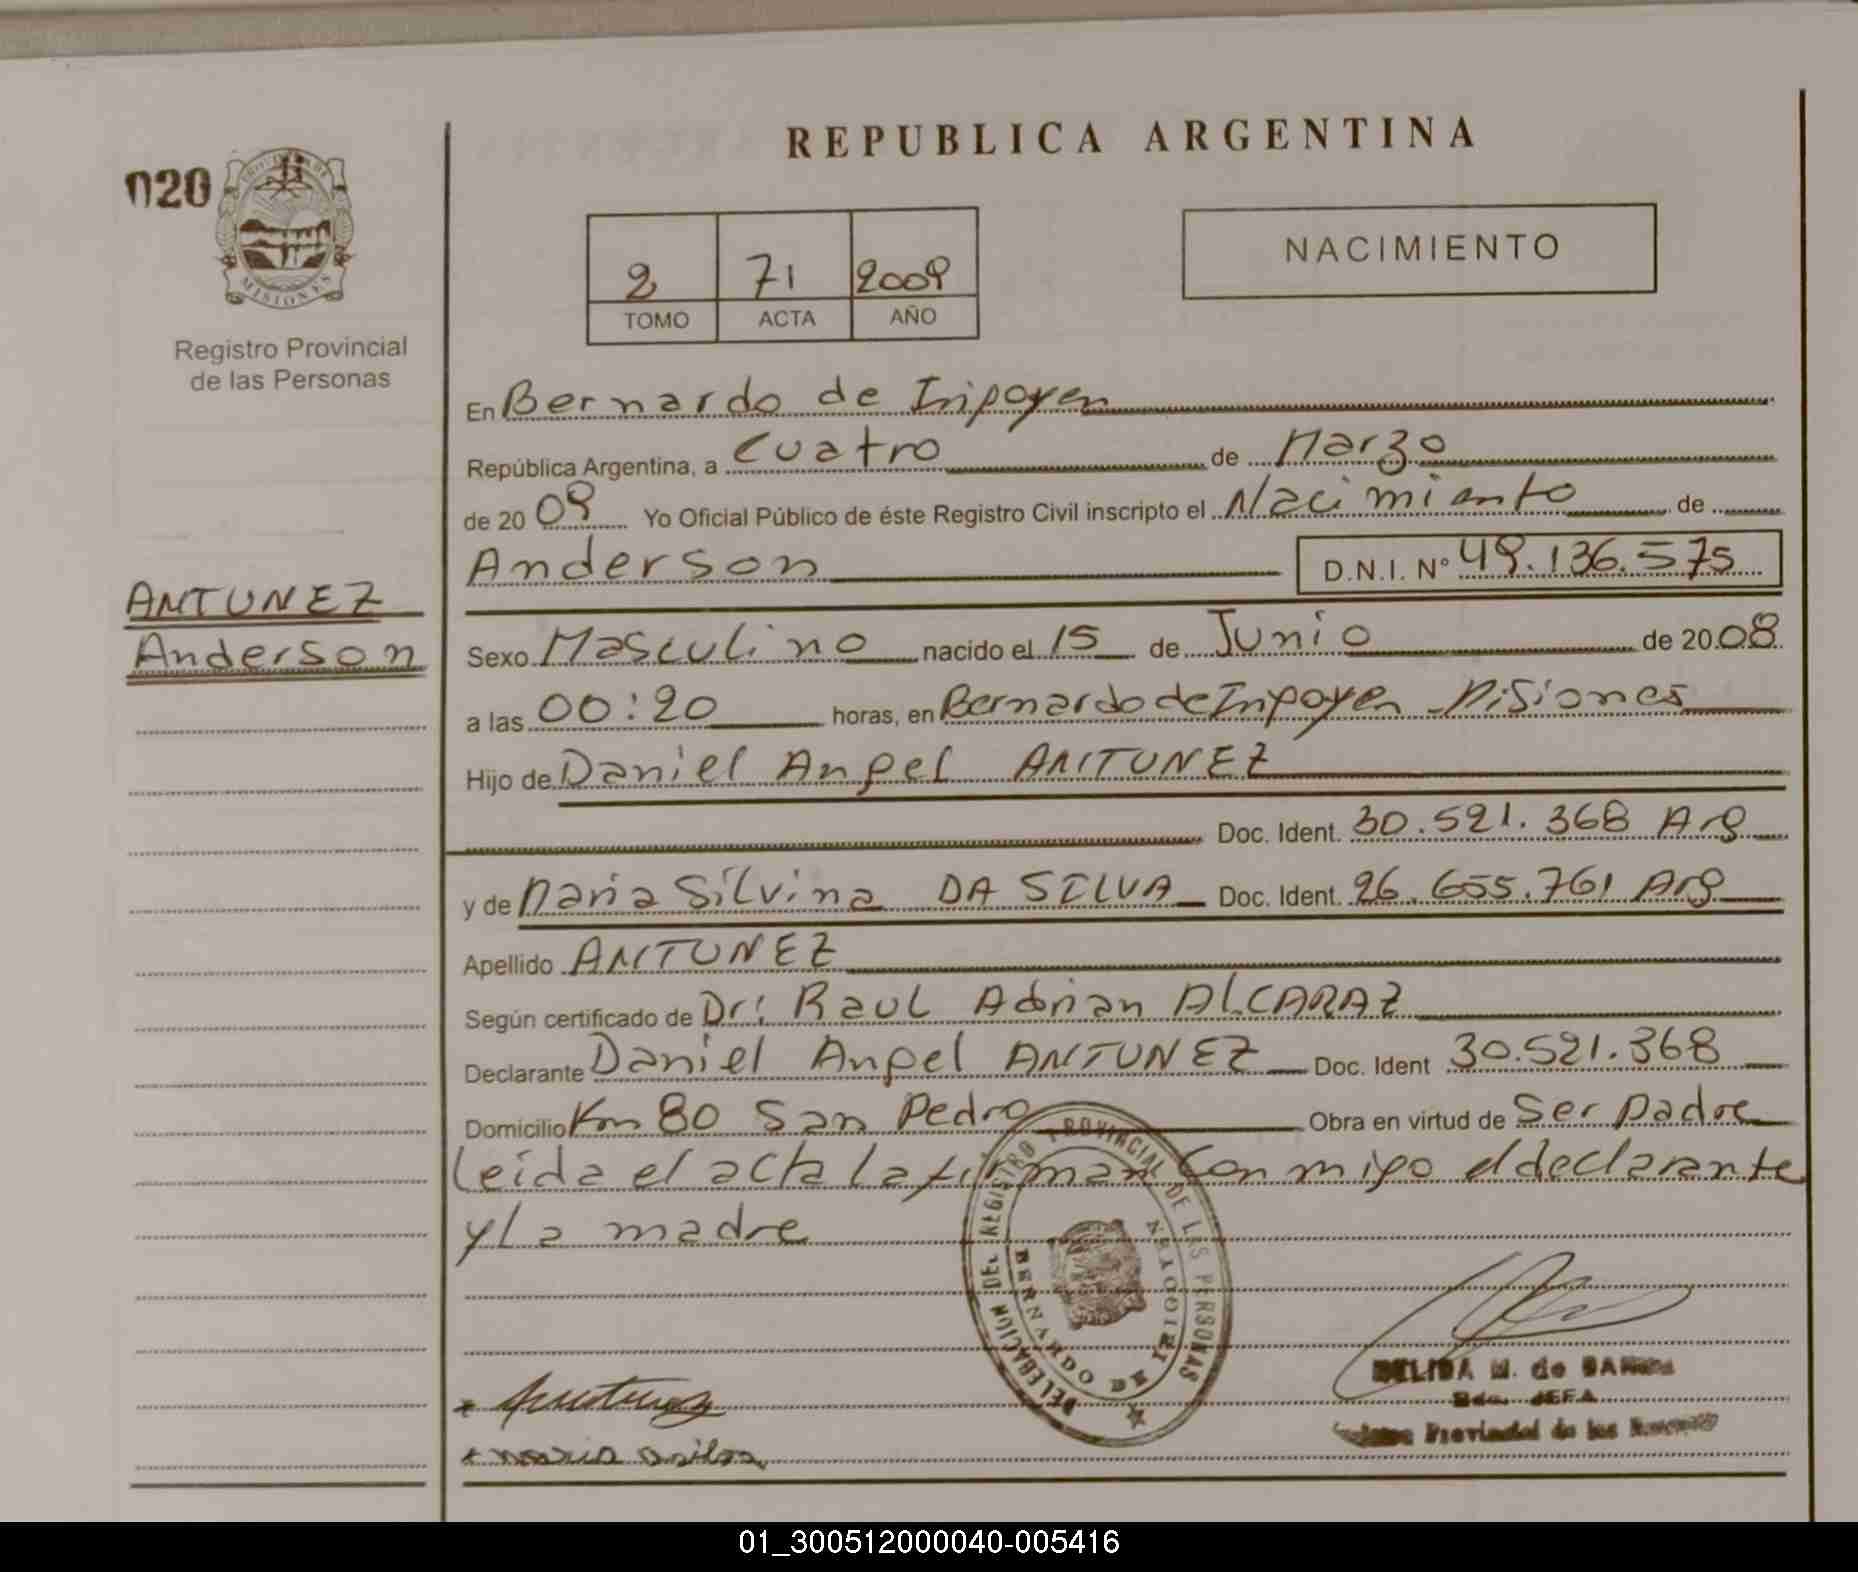 REPUBLICA ARGENTINA
020
PROVINCIA DE
MISIONES
Registro Provincial
de las Personas
2 71 2009
TOMO ACTA AÑO
NACIMIENTO
En Bernardo de Irigoyen
República Argentina, a Cuatro de Marzo
de 2009 Yo Oficial Público de éste Registro Civil inscripto el Nacimiento de
Anderson D.N.I. Nº 49.136.575
ANTUNEZ
Anderson
Sexo Masculino nacido el 15 de Junio de 2008
a las 00:20 horas, en Bernardo de Irigoyen Misiones
Hijo de Daniel Angel ANTUNEZ
Doc. Ident. 30.521.368 Arg
y de Maria Silvina DA SILVA Doc. Ident. 26.655.761 Arg
Apellido ANTUNEZ
Según certificado de Dr: Raul Adrian ALCARAZ
Declarante Daniel Angel ANTUNEZ Doc. Ident 30.521.368
Domicilio Km 80 San Pedro Obra en virtud de Ser padre
Leida el acta la firman Con migo el declarante
y La madre
DELEGACION DEL REGISTRO PROVINCIAL DE LAS PERSONAS
BERNARDO DE IRIGOYEN
M. de
JEFA
Provincial de las
01_300512000040-005416